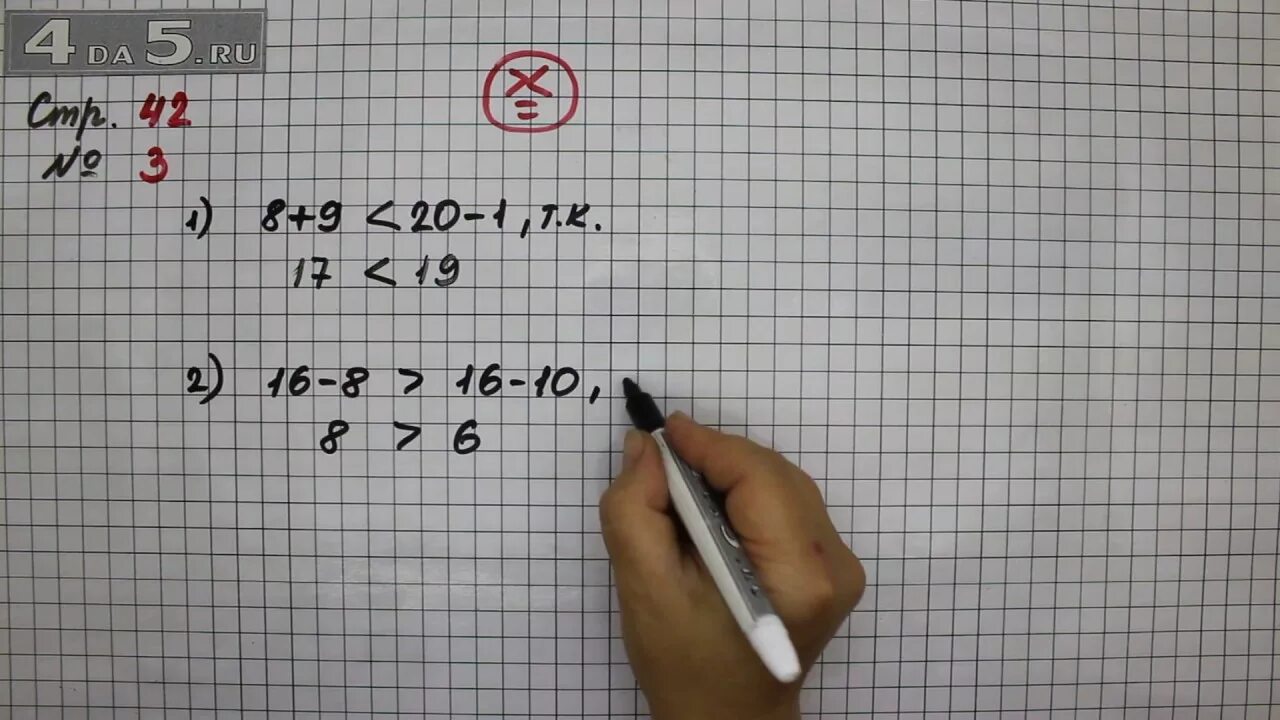 4DA5.RU
Стр. 42
№ 3
х
=
1) 8+9 < 20-1, т.к.
17 < 19
2) 16-8 > 16-10,
8 > 6